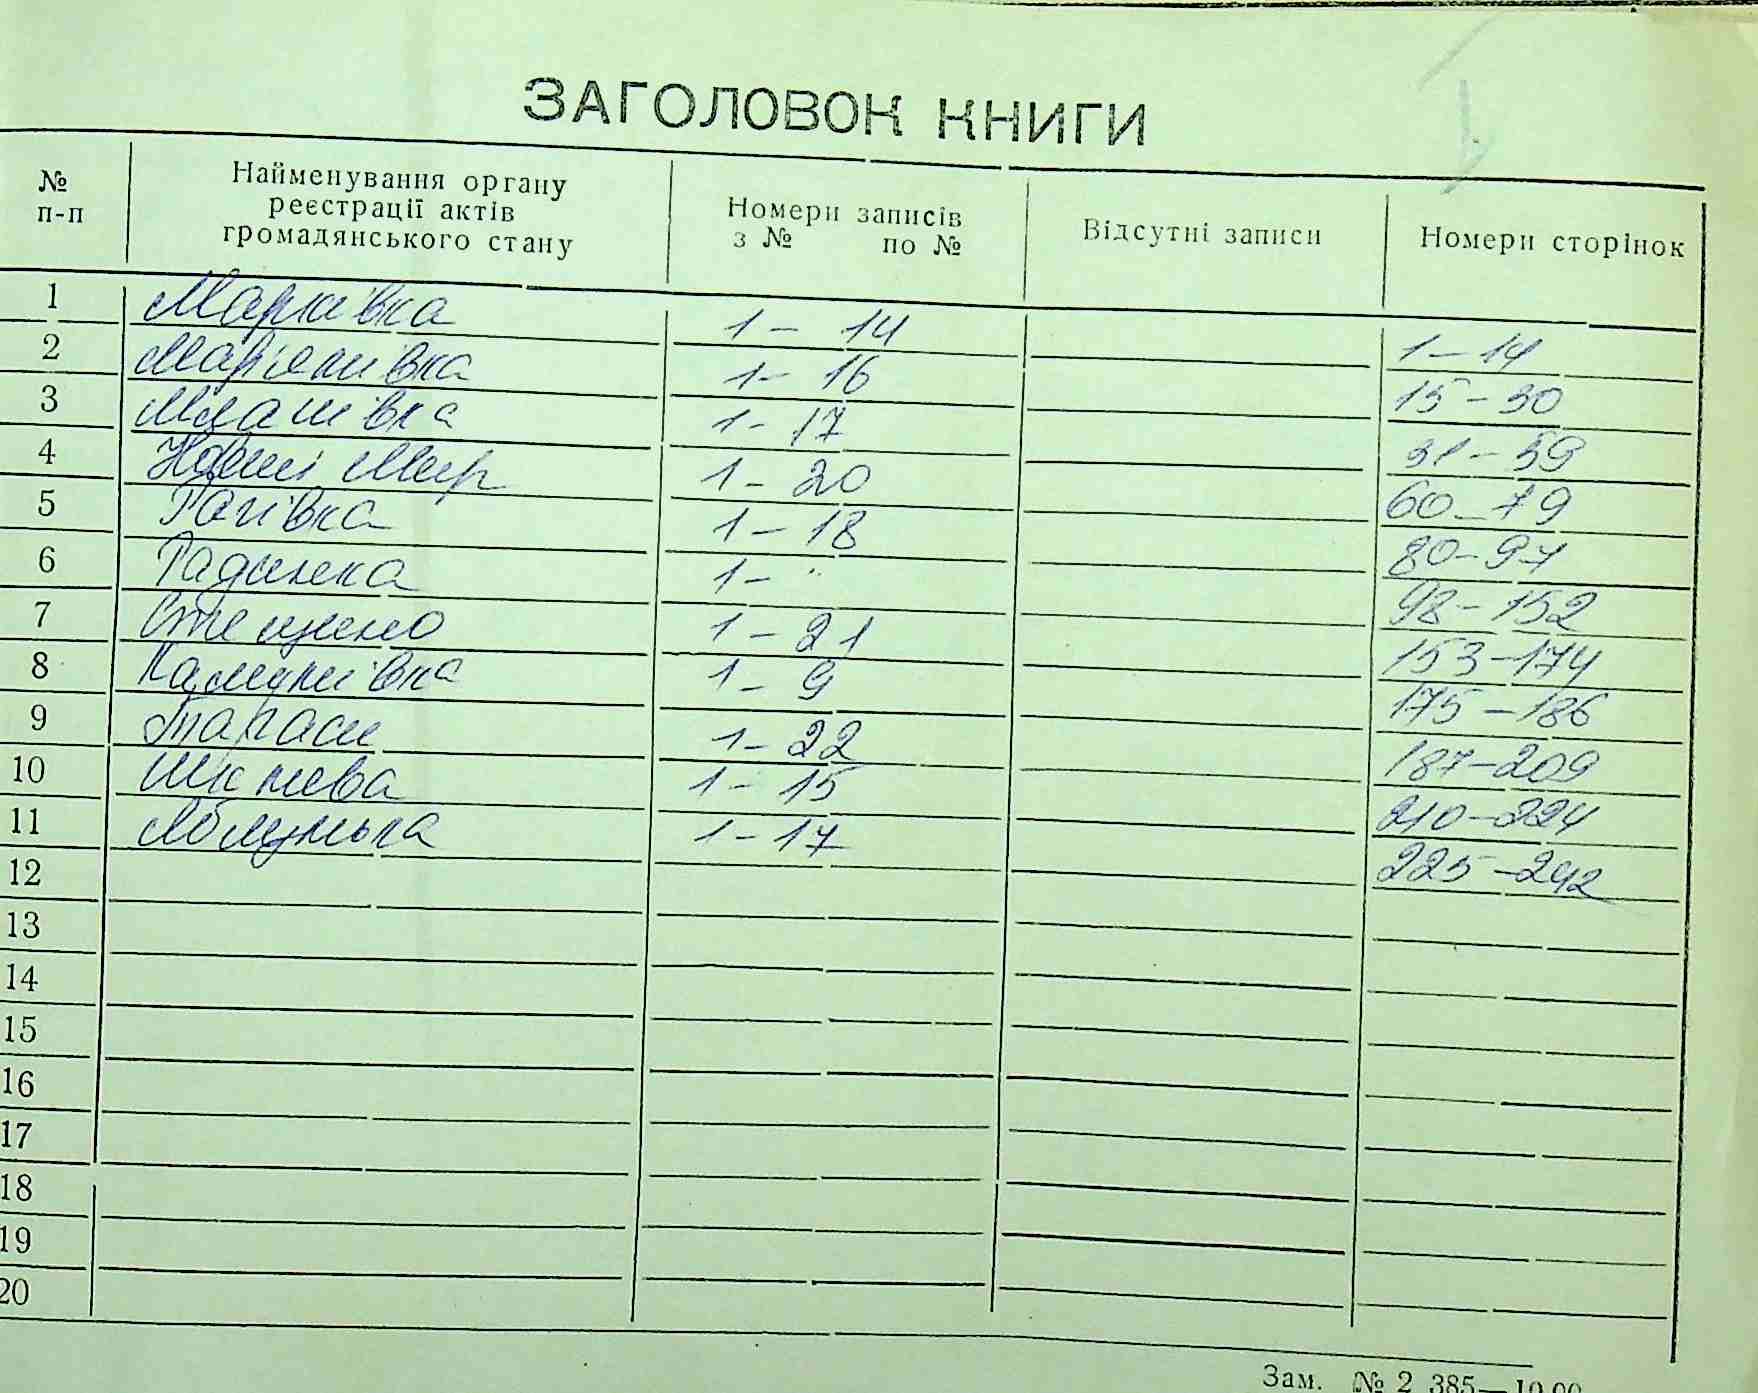 ЗАГОЛОВОК КНИГИ
№ п-п | Найменування органу реєстрації актів громадянського стану | Номери записів з № по № | Відсутні записи | Номери сторінок
1 Марківка 1 - 14 1 - 14
2 Мар'янівка 1 - 16 15 - 30
3 Млашівка 1 - 17 31 - 59
4 Новий Мир 1 - 20 60 - 79
5 Рагівка 1 - 18 80 - 97
6 Радинка 1 - 98 - 152
7 Стещино 1 - 21 153 - 174
8 1 - 9 175 - 186
9 Тараси 1 - 22 187 - 209
10 Шкнева 1 - 15 210 - 224
11 Яблунька 1 - 17 225 - 242
12
13
14
15
16
17
18
19
20
Зам. № 2 385—10.00